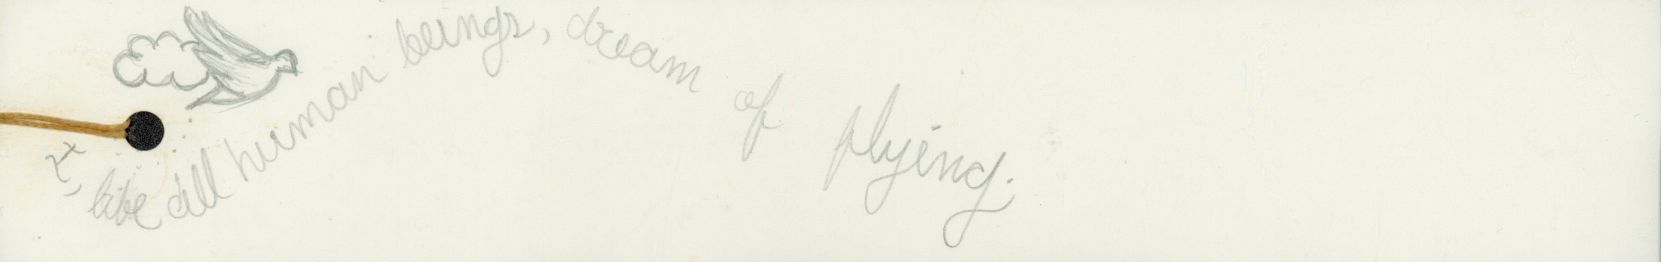 I, like all human beings, dream of flying.